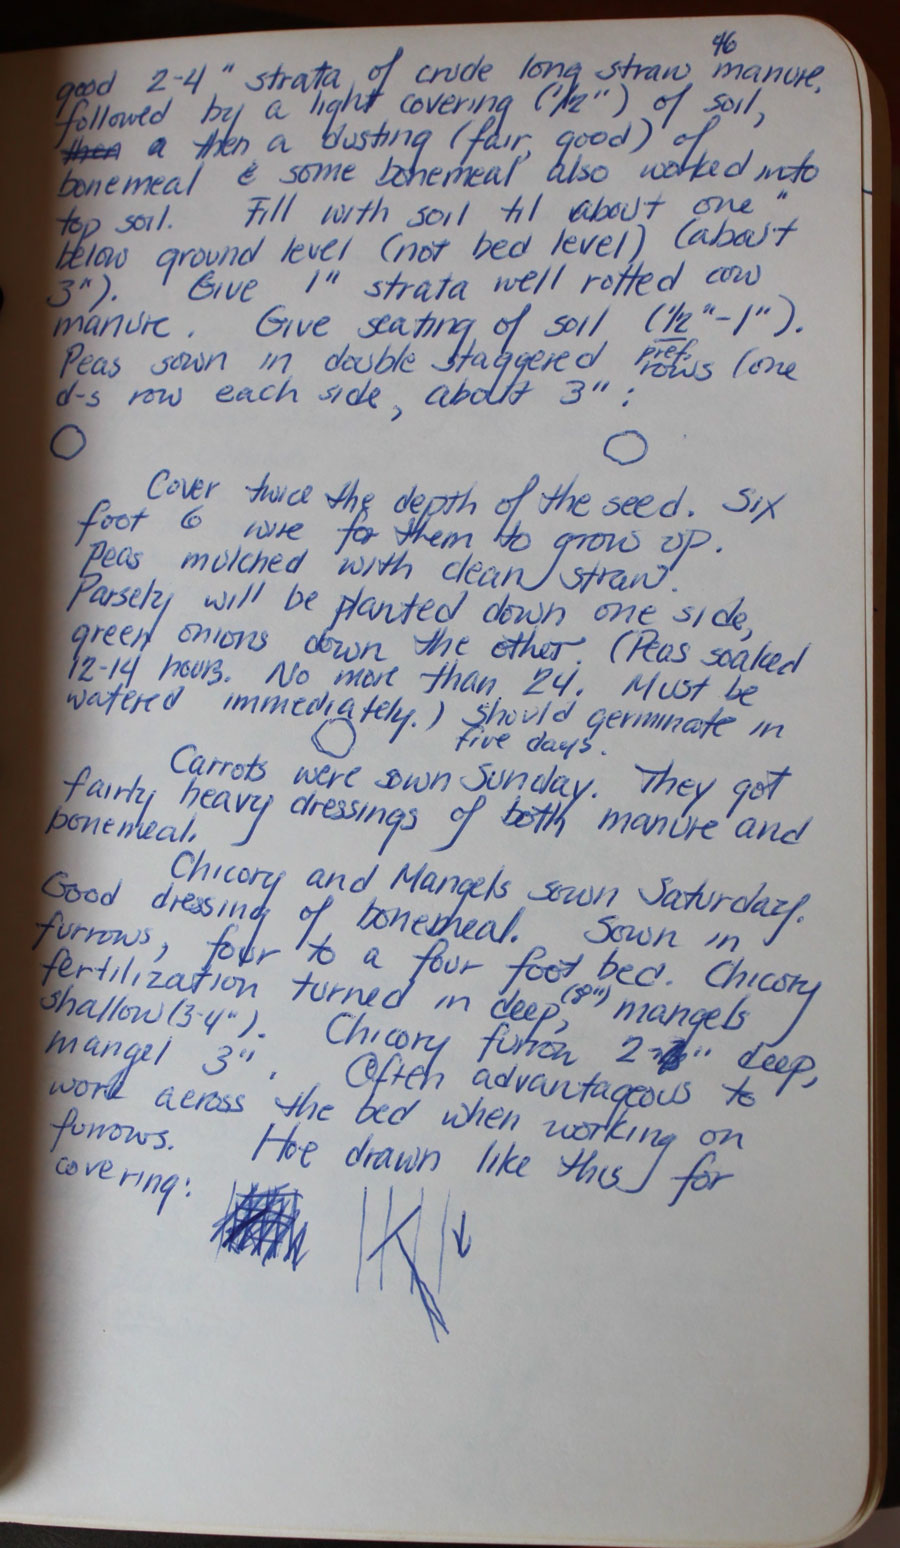 46
good 2-4" strata of crude long straw manure,
followed by a light covering (1/2") of soil,
then a then a dusting (fair, good) of
bonemeal & some bonemeal also worked into
top soil. Fill with soil til about one "
below ground level (not bed level) (about
3"). Give 1" strata well rotted cow
manure. Give seating of soil (1/2"-1").
pref.
Peas sown in double staggered rows (one
d-s row each side, about 3":
Cover twice the depth of the seed. Six
foot 6 wire for them to grow up.
Peas mulched with clean straw.
Parsely will be planted down one side,
green onions down the other. (Peas soaked
12-14 hours. No more than 24. Must be
watered immediately.) Should germinate in
five days.
Carrots were sown Sunday. They got
fairly heavy dressings of both manure and
bonemeal.
Chicory and Mangels sown Saturday.
Good dressing of bonemeal. Sown in
furrows, four to a four foot bed. Chicory
fertilization turned in deep, (8") mangels
shallow (3-4"). Chicory furrow 2- " deep,
mangel 3". Often advantageous to
work across the bed when working on
furrows. Hoe drawn like this for
covering: